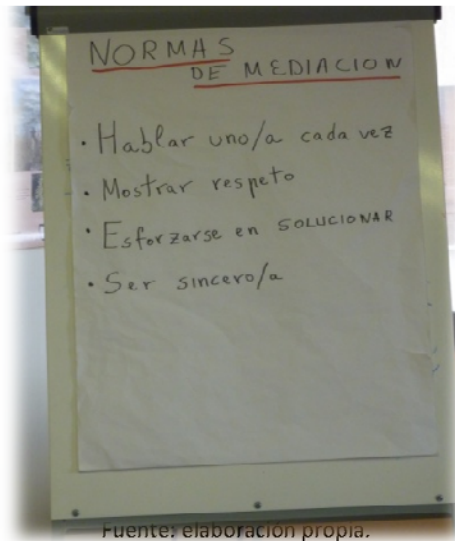 NORMAS
DE MEDIACION
• Hablar uno/a cada vez
• Mostrar respeto
• Esforzarse en SOLUCIONAR
• Ser sincero/a
Fuente: elaboración propia.